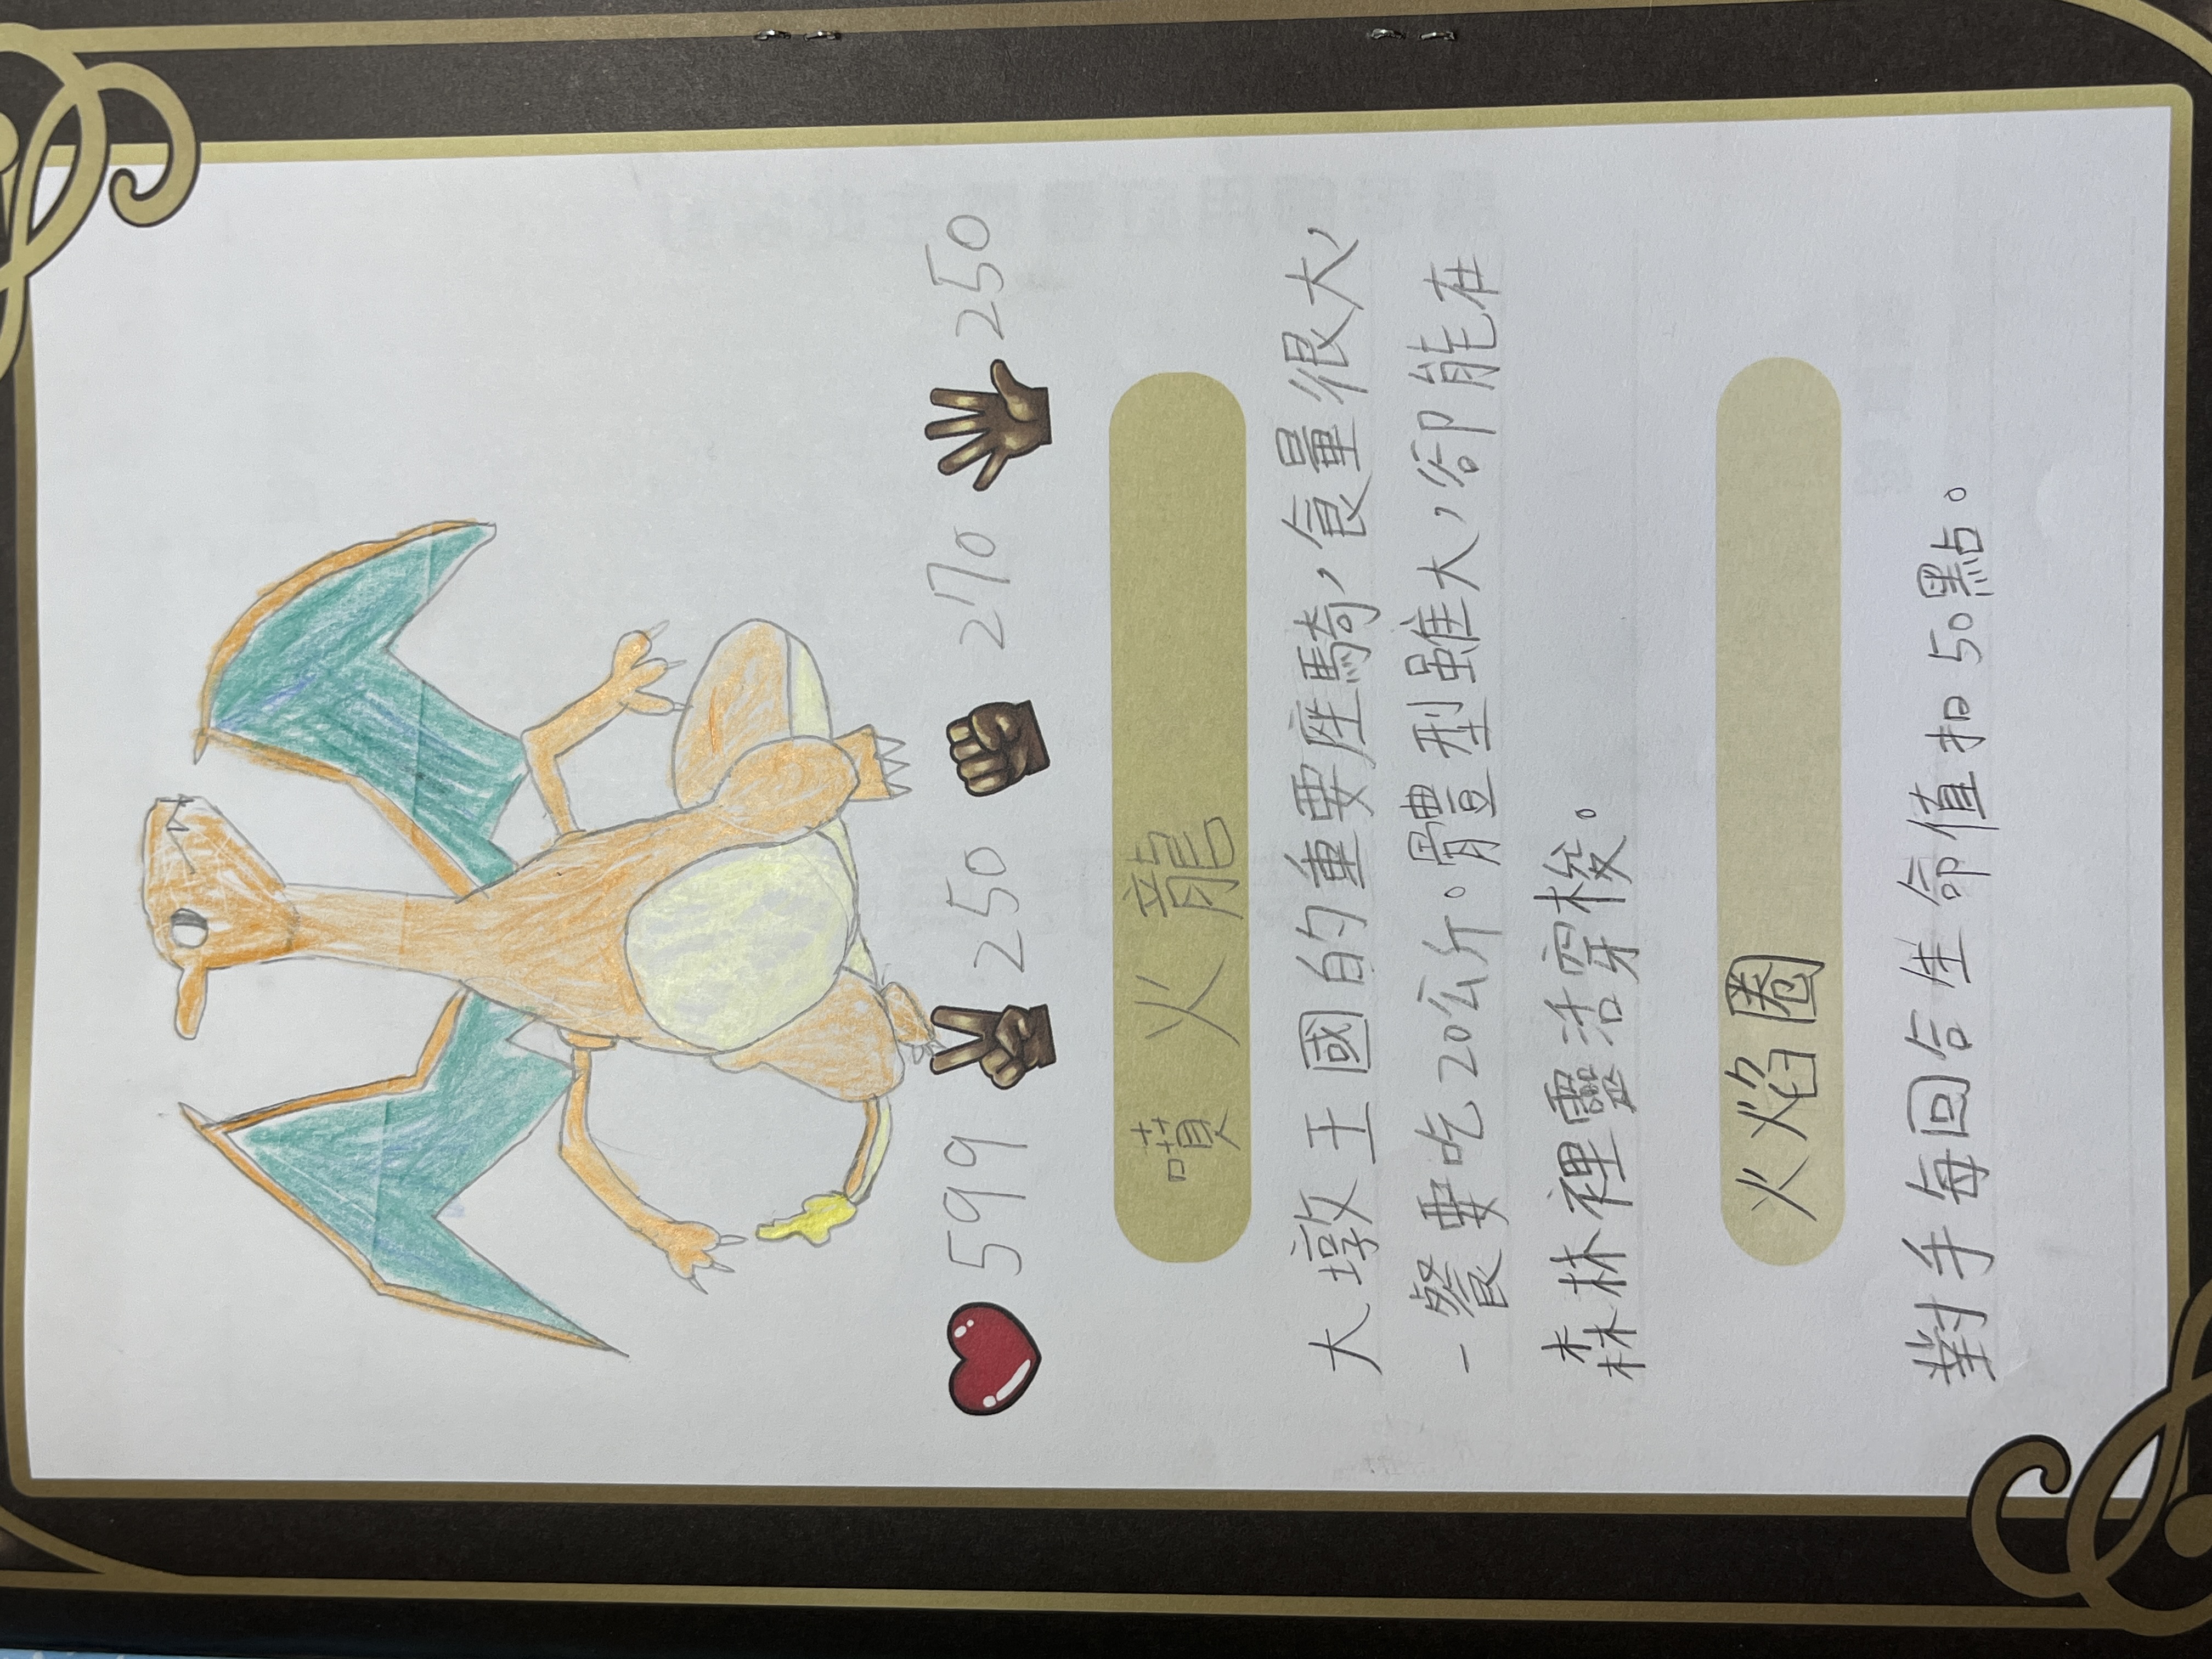 599 250 270 250
噴火龍
大墩王國的重要座騎，食量很大，
一餐要吃20公斤。體型雖大，卻能在
森林裡靈活穿梭。
火焰圈
對手每回合生命值扣50點。